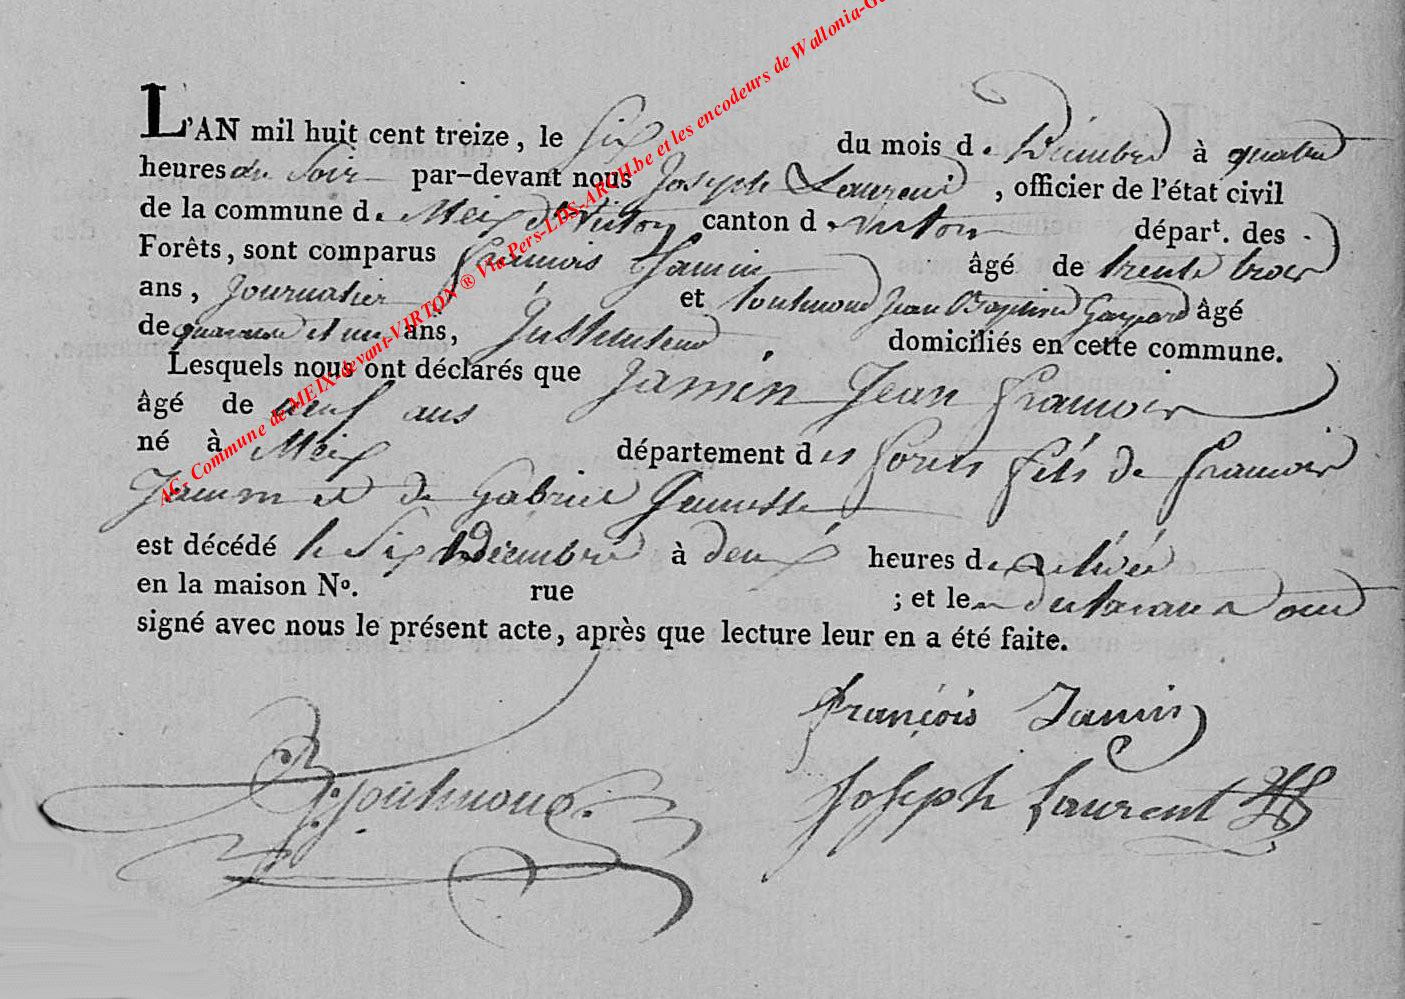 AG. Commune de MEIX-devant-VIRTON ® Via Pers-LDS-ARCH.be et les encodeurs de Wallonia-G
L'AN mil huit cent treize, le Six du mois de Décembre à quatre
heures du Soir par-devant nous Joseph Laurent, officier de l'état civil
de la commune de Meix dt Virton canton de virton départ. des
Forêts, sont comparus François Jamin âgé de trente trois
ans, Journalier et Jean Baptiste Gaspard âgé
de quarante et un ans, Instituteur domiciliés en cette commune.
Lesquels nous ont déclarés que Jamin Jean François
âgé de neuf ans
né à Meix département des forets fils de François
Jamin et de Gabriel
est décédé le Six Décembre à deux heures de relevée
en la maison No. rue ; et les declarants ont
signé avec nous le présent acte, après que lecture leur en a été faite.
François Jamin
Joseph Laurent